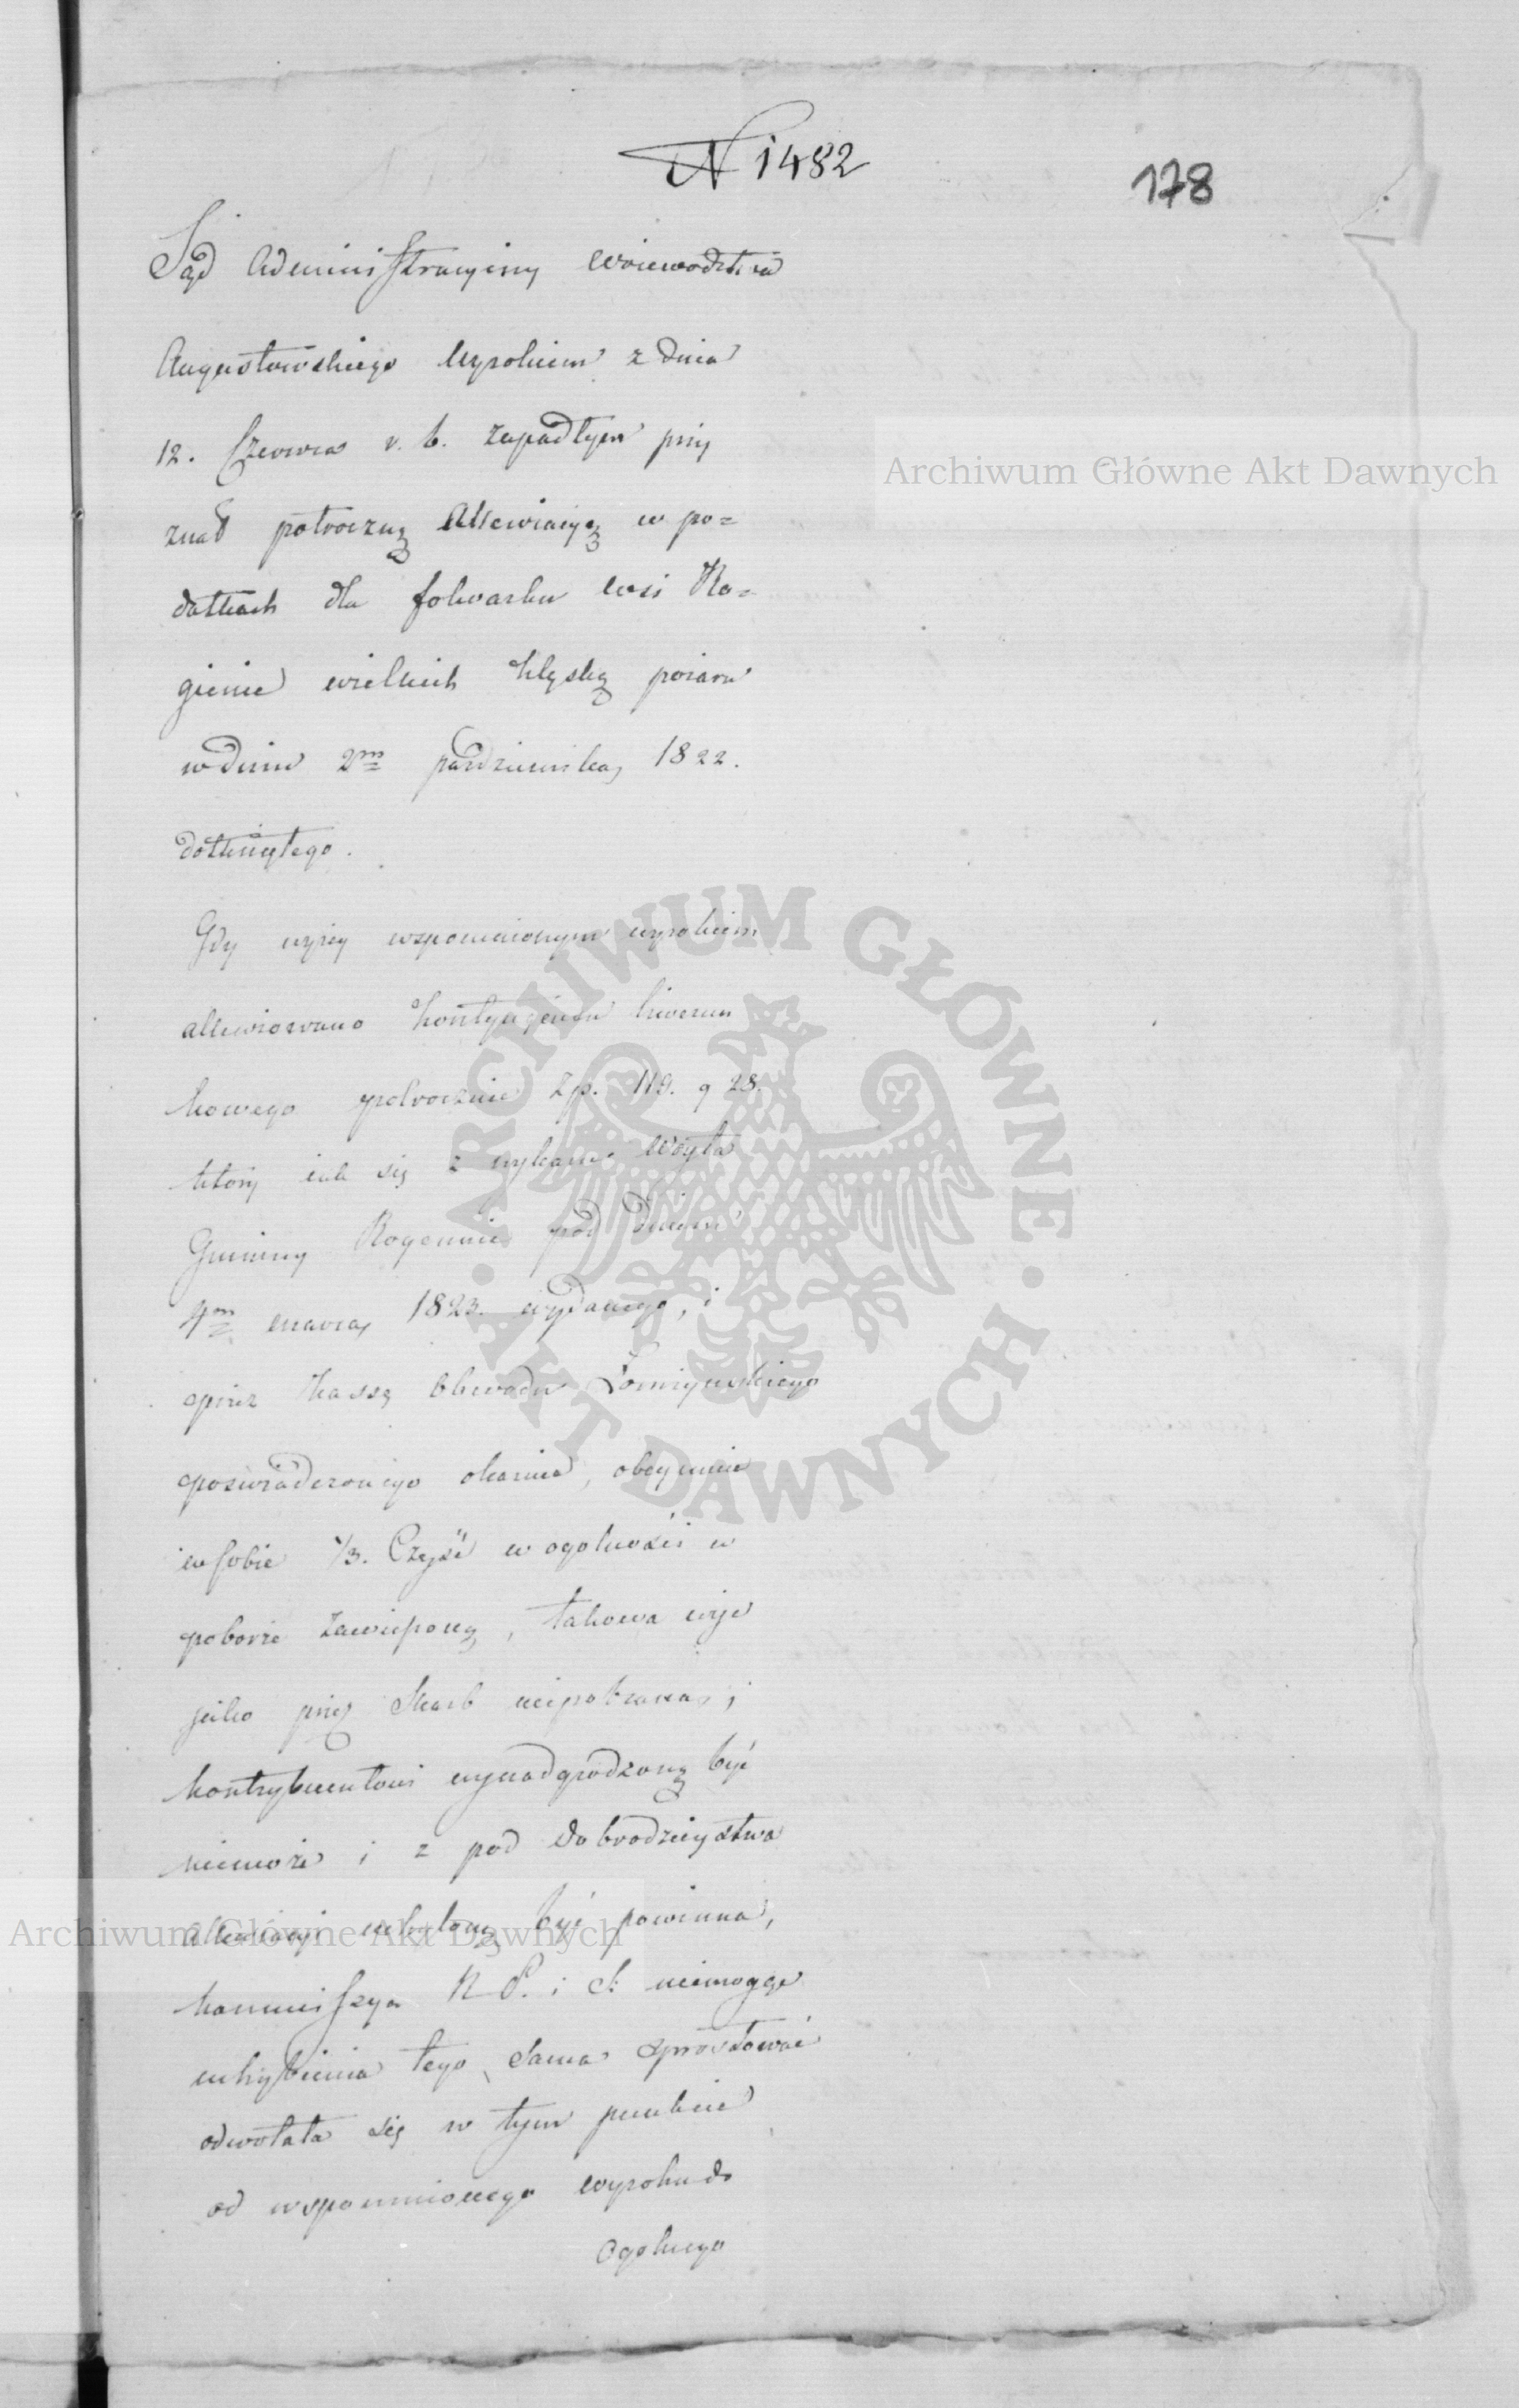 N 1482
178
Sąd Administracyiny Woiewodztwa
Augustowskiego Wyrokiem z dnia
12. Czerwca r. b. zapadłym przy
znał połroczną Allewiacyą w po=
datkach dla folwarku wsi Ro=
gienie wielkich klęską pożaru
w dniu 2m pazdziernika 1822.
dotkniętego.
Gdy wyżey wspomnionym wyrokiem
allewiowano kontyngensu liwerun
kowego połrocznie Zp. 119. g 28.
ktory iak się z wykazu Woyta
Gminny Rogennie pod dniem
4m marca 1823. wydanego, i
przez Kassę Obwodu Łomżynskiego
poswiadczonego okazuie, obeymuie
w sobie 1/3. Część w ogolności w
poborze zawieszoną, takowa więc
jako przez Skarb niepobrana,
kontrybuentowi wynadgrodzoną być
niemoże i z pod dobrodzieystwa
allewiacyi uchyloną być powinna,
Kommissya R P. i S. niemogąc
uchybienia tego sama sprostować
odwołała się w tym punkcie
od wspomnionego wyroku do
Ogolnego
Archiwum Główne Akt Dawnych
ARCHIWUM GŁÓWNE · AKT DAWNYCH ·
Archiwum Główne Akt Dawnych